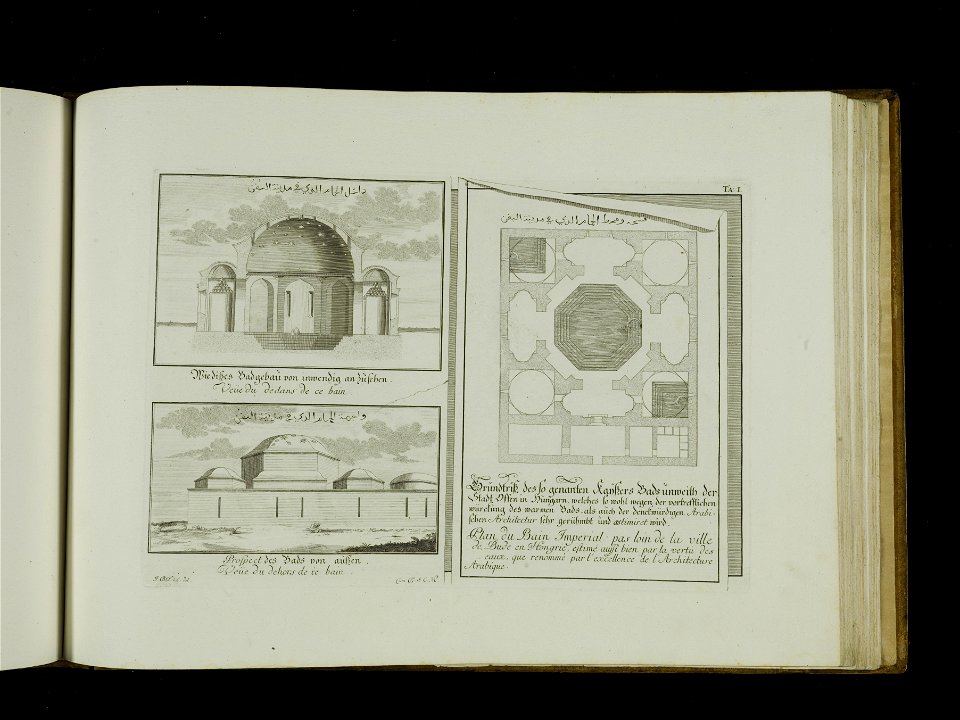 داخل الحمام الذي في مدينة
Wie dises Badgebäu von inwendig an zusehen.
Veüe du dedans de ce bain.
الحمام الذي في مدينة
Prospect des Bads von außen.
Veüe du dehors de ce bain.
Ta: I.
الحمام الذي في مدينة
Grundriß des so genanten Kaÿsers Bads unweith der
Stadt Offen in Hungarn, welches so wohl wegen der vortrefflichen
würckung des warmen Bads, als auch der denckwürdigen Arabi-
schen Architectur sehr gerühmbt und æstimiret wird.
Plan du Bain Imperial pas loin de la ville
de Bude en Hongrie, estimé aussi bien par la vertu des
eaux, que renommé par l'excellence de l'Architecture
Arabique.